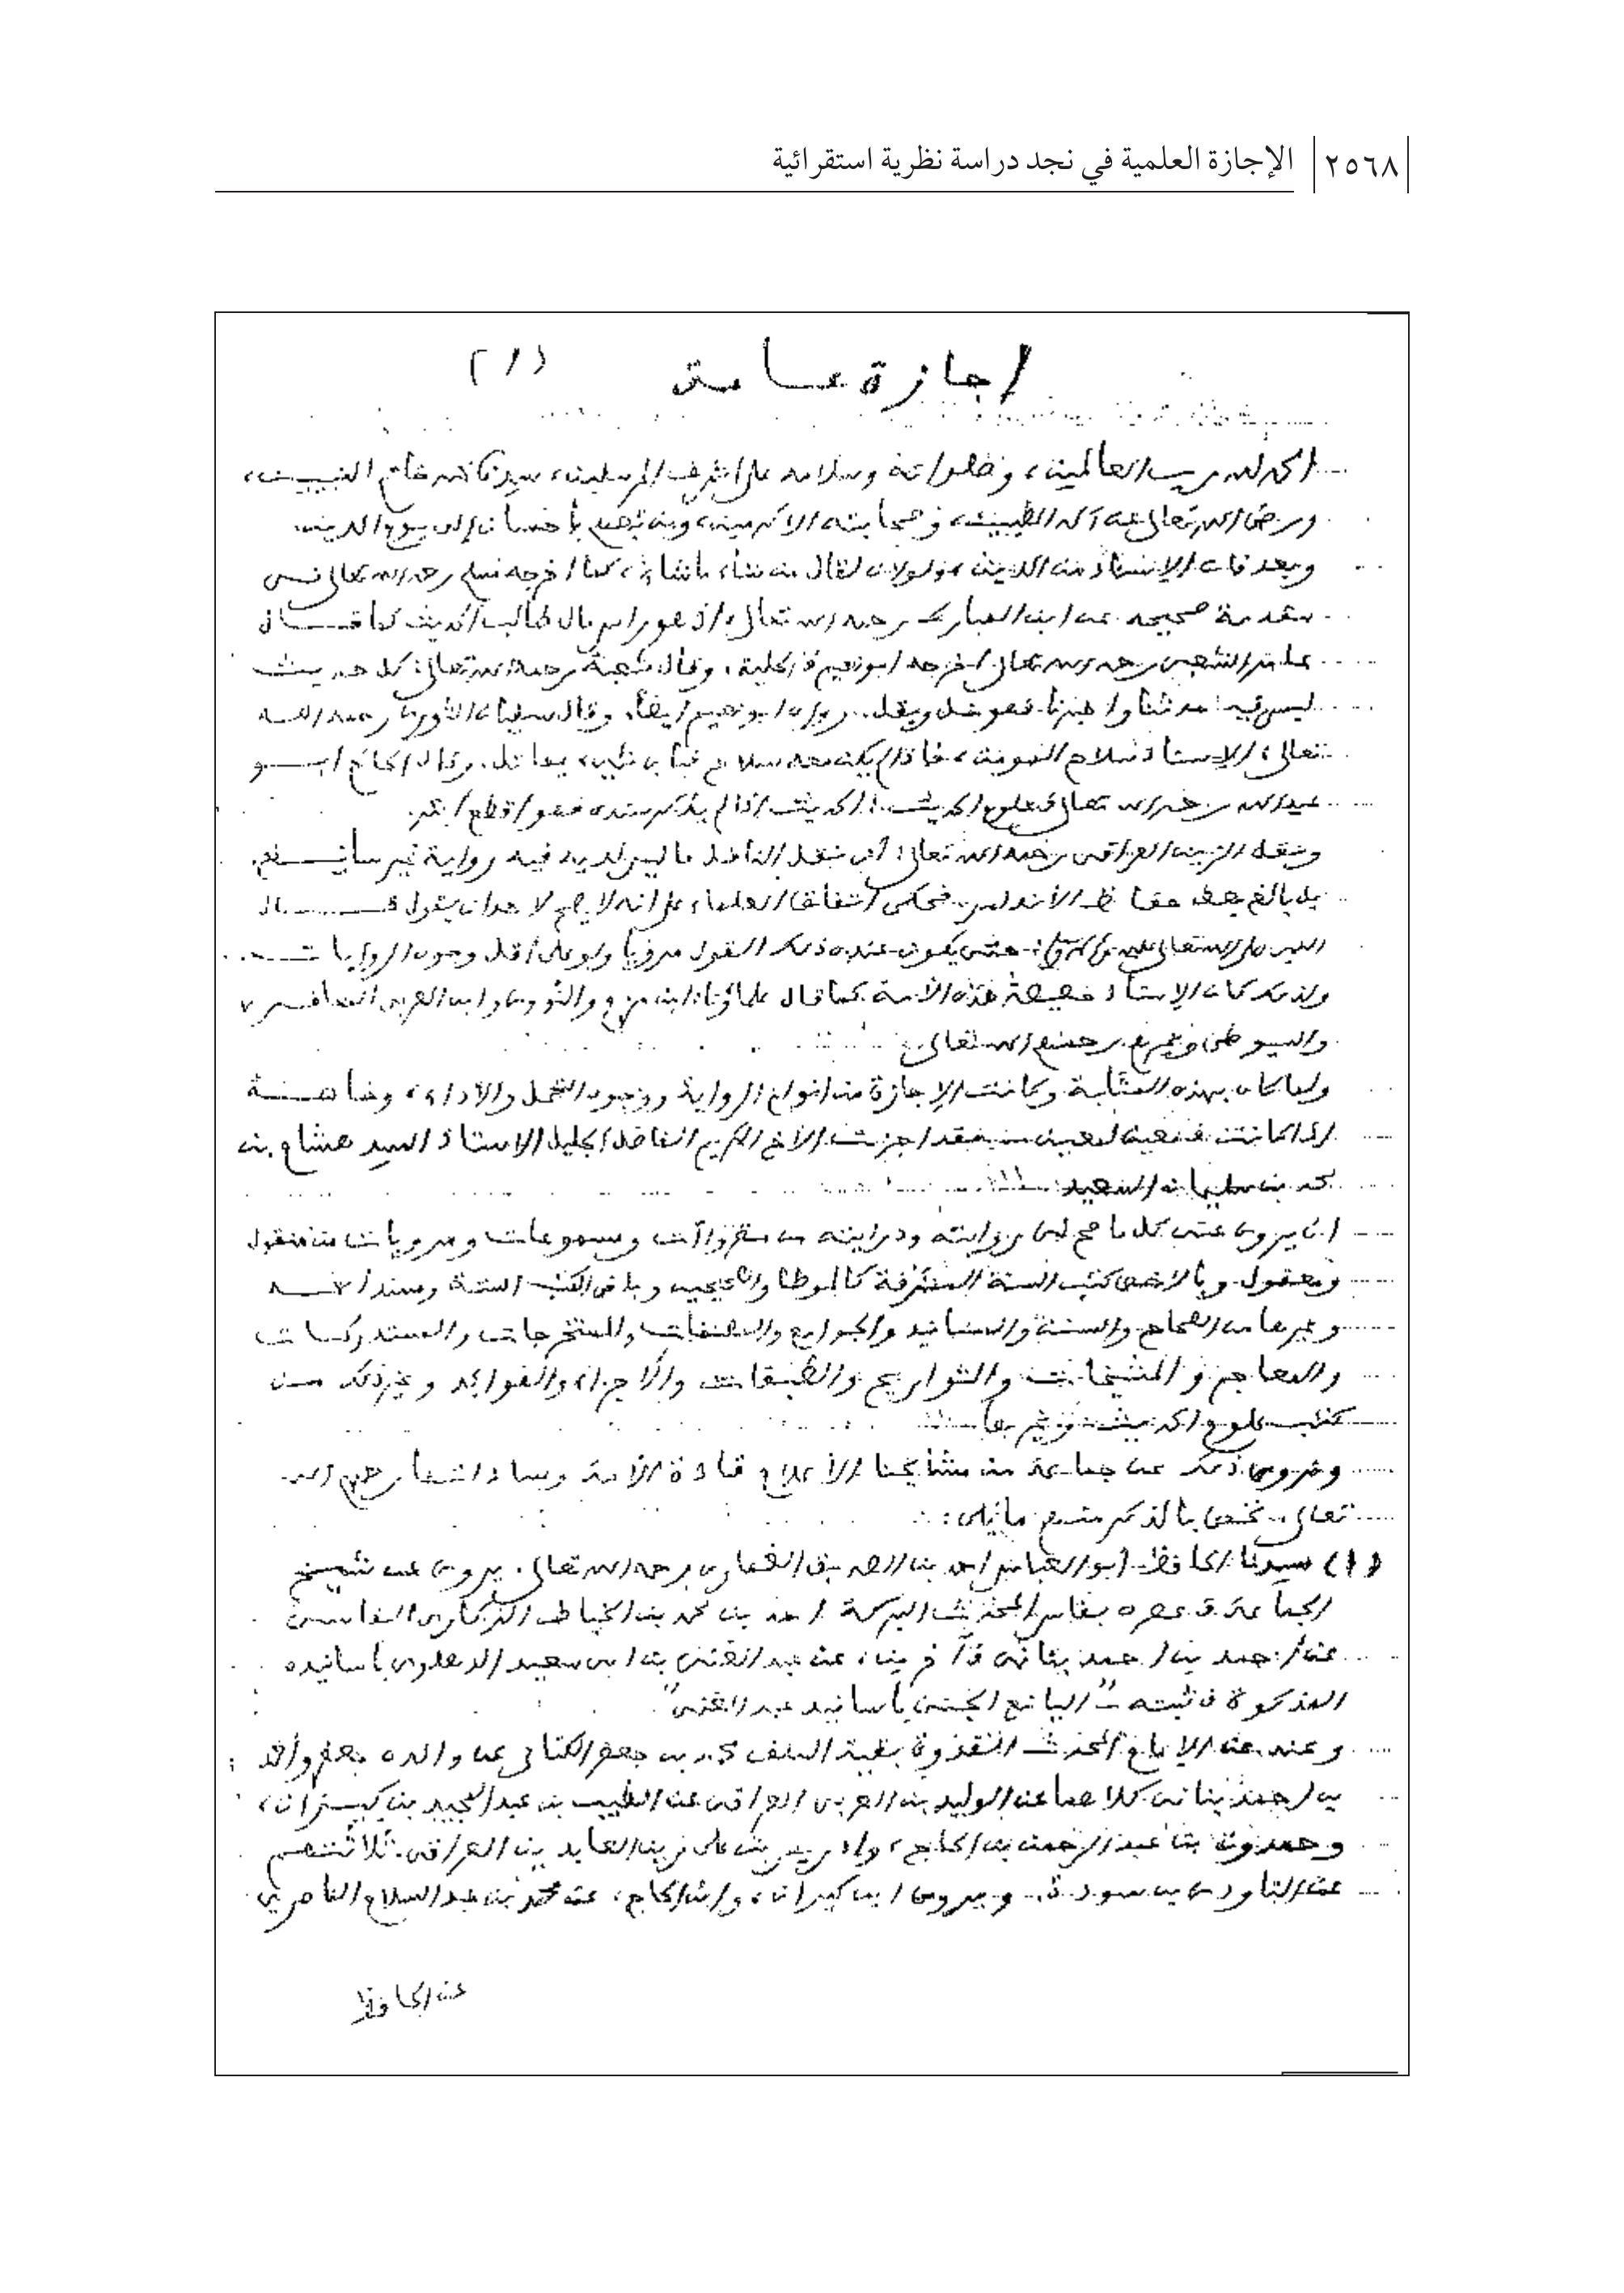 ٢٥٦٨ الإجازة العلمية في نجد دراسة نظرية استقرائية
إجازة عامة (١)
الحمد لله رب العالمين، وصلواته وسلامه على أشرف المرسلين، سيدنا محمد خاتم النبيين،
ورضي الله تعالى عن آله الطيبين، وصحابته الأكرمين، ومن تبعهم بإحسان إلى يوم الدين.
وبعد فإن الإسناد من الدين، ولولاه لقال من شاء ما شاء، كما أخرجه مسلم رحمه الله تعالى في
مقدمة صحيحه عن ابن المبارك رحمه الله تعالى، إذ هو رأس مال طالب الحديث كما قال
الشعبي رحمه الله تعالى أخرجه أبو نعيم في الحلية، وقال شعبة رحمه الله تعالى: كل حديث
ليس فيه حدثنا وأخبرنا فهو خل وبقل. رواه أبو نعيم أيضاً، وقال سفيان الثوري رحمه الله
تعالى: الإسناد سلاح المؤمن، فإذا لم يكن معه سلاح فبأي شيء يقاتل. وقال الحاكم أبو
عبد الله رحمه الله تعالى في علوم الحديث: الحديث إذا لم يذكر سنده فهو أقطع أبتر.
ونقل الزين العراقي رحمه الله تعالى: أن نقل الناقل ما ليس لديه فيه رواية غير سائغ،
بل بالغ بعض حفاظ الأندلس فحكى اتفاق العلماء على أنه لا يصح لأحد أن يقول قال
النبي صلى الله تعالى عليه وآله وسلم: حتى يكون عنده ذلك القول مروياً ولو على أقل وجوه الروايات
ولذلك كان الإسناد خصيصة هذه الأمة كما قال علماؤنا ابن حزم والنووي وابن العربي المعافري
والسيوطي وغيرهم رحمهم الله تعالى.
ولما كان بهذه المثابة وكانت الإجازة من أنواع الرواية ووجوه التحمل والأداء، وخاصة
إذا كانت من معين لمعين فقد أجزت الأخ الكريم الفاضل الجليل الأستاذ السيد هشام بن
محمد بن سليمان السعيد
أن يروي عني كل ما صح لي روايته ودرايته من مقروآت ومسموعات ومرويات من منقول
ومعقول وبالأخص كتب السنة المشرفة كالموطأ والصحيحين وباقي الكتب الستة ومسند أحمد
وغيرها من الصحاح والسنن والمسانيد والجوامع والمصنفات والمستخرجات والمستدركات
والمعاجم والمشيخات والتواريخ والطبقات والأجزاء والفوائد وغير ذلك من
كتب علوم الحديث وغيرها
ونروي ذلك عن جماعة من مشايخنا الأعلام قادة الأمة وساداتها رحمهم الله
تعالى، نخص بالذكر منهم ما يلي:
(١) سيدنا الحافظ أبو العباس أحمد بن الصديق الغماري رحمه الله تعالى. يروي عن شيخ
الجماعة في عصره بفاس المحدث البركة أحمد بن محمد بن الخياط الزكاري الفاسي
عن أحمد بن أحمد بناني في آخرين، عن عبد الغني بن أبي سعيد الدهلوي بأسانيده
المذكورة في ثبته "اليانع الجني بأسانيد عبد الغني".
وعنه عن الإمام المحدث القدوة بقية السلف محمد بن جعفر الكتاني عن والده جعفر وأحمد
بن أحمد بناني كلاهما عن الوليد بن العربي العراقي عن الطيب بن عبد المجيد بن كيران،
وحمدون بن عبد الرحمن بن الحاج، وإدريس بن علي زين العابدين العراقي ثلاثتهم
عن التاودي بن سودة. ويروي ابن كيران، وابن الحاج، عن محمد بن عبد السلام الناصري
عن الحافظ